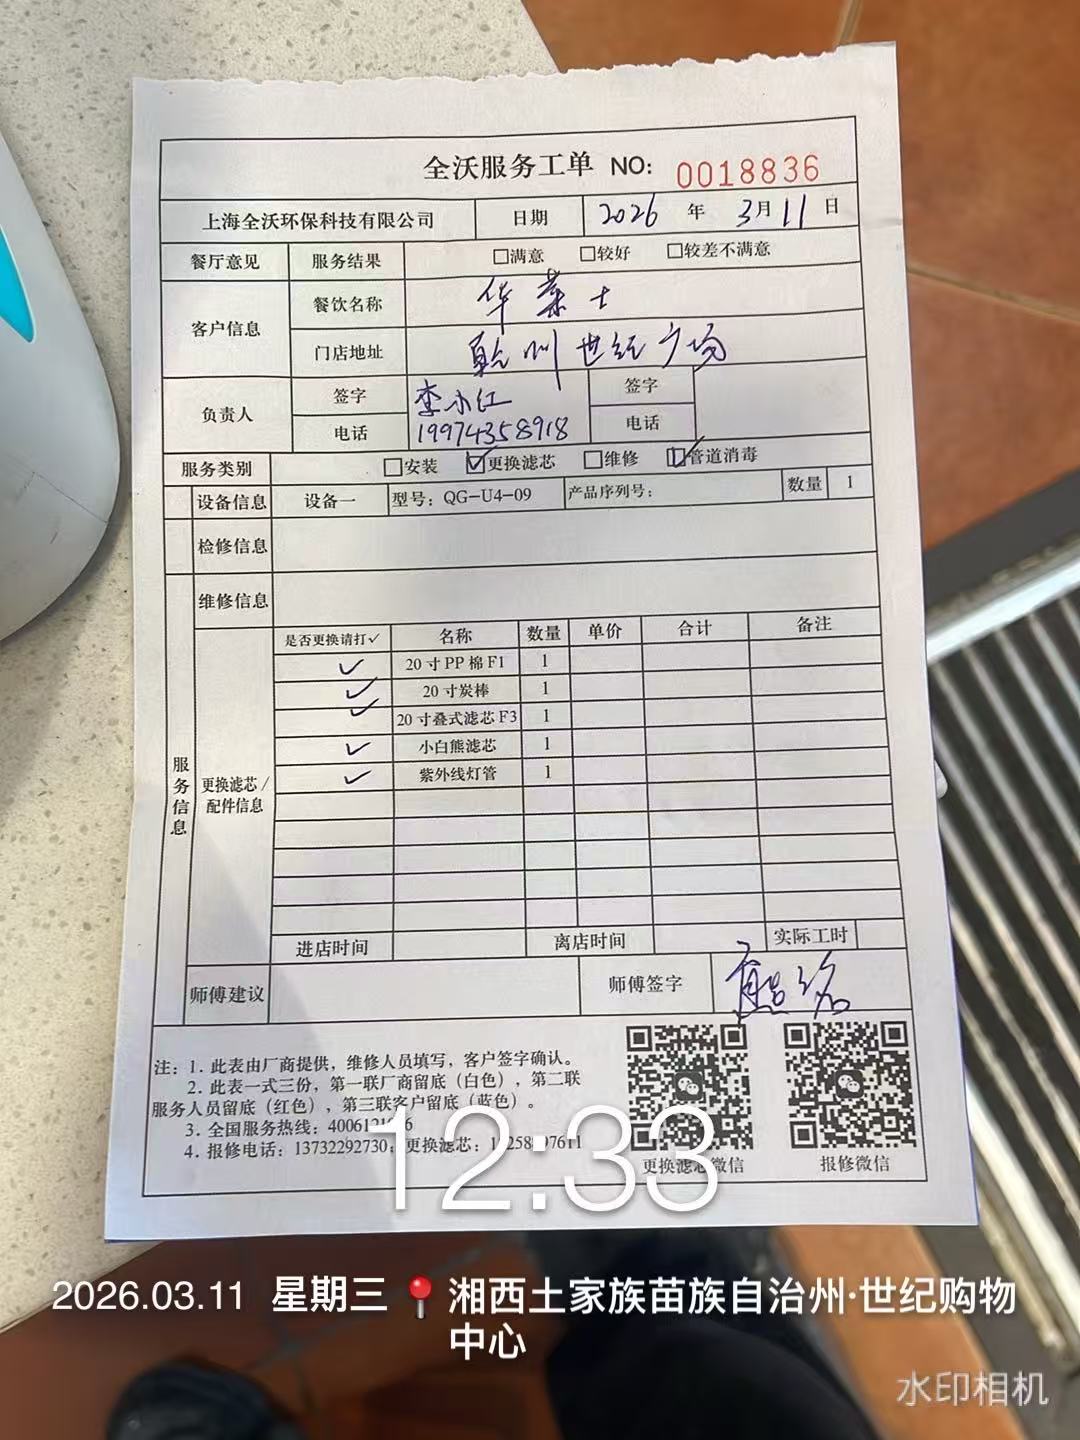 全沃服务工单 NO: 0018836
上海全沃环保科技有限公司 日期 2026 年 3月 11 日
餐厅意见 服务结果 □满意 □较好 □较差不满意
客户信息 餐饮名称 华莱士
门店地址 乾州世纪广场
负责人 签字 李小红 签字
电话 19974358918 电话
服务类别 □安装 ☑更换滤芯 □维修 ☑管道消毒
设备信息 设备一 型号：QG-U4-09 产品序列号： 数量 1
检修信息
维修信息
服务信息 更换滤芯/配件信息
是否更换请打✓ 名称 数量 单价 合计 备注
✓ 20寸PP棉F1 1
✓ 20寸炭棒 1
✓ 20寸叠式滤芯F3 1
✓ 小白熊滤芯 1
✓ 紫外线灯管 1
进店时间 离店时间 实际工时
师傅建议 师傅签字
注：1. 此表由厂商提供，维修人员填写，客户签字确认。
2. 此表一式三份，第一联厂商留底（白色），第二联
服务人员留底（红色），第三联客户留底（蓝色）。
3. 全国服务热线：
4. 报修电话：13732292730，更换滤芯：
更换滤芯微信 报修微信
12:33
2026.03.11 星期三 湘西土家族苗族自治州·世纪购物
中心
水印相机